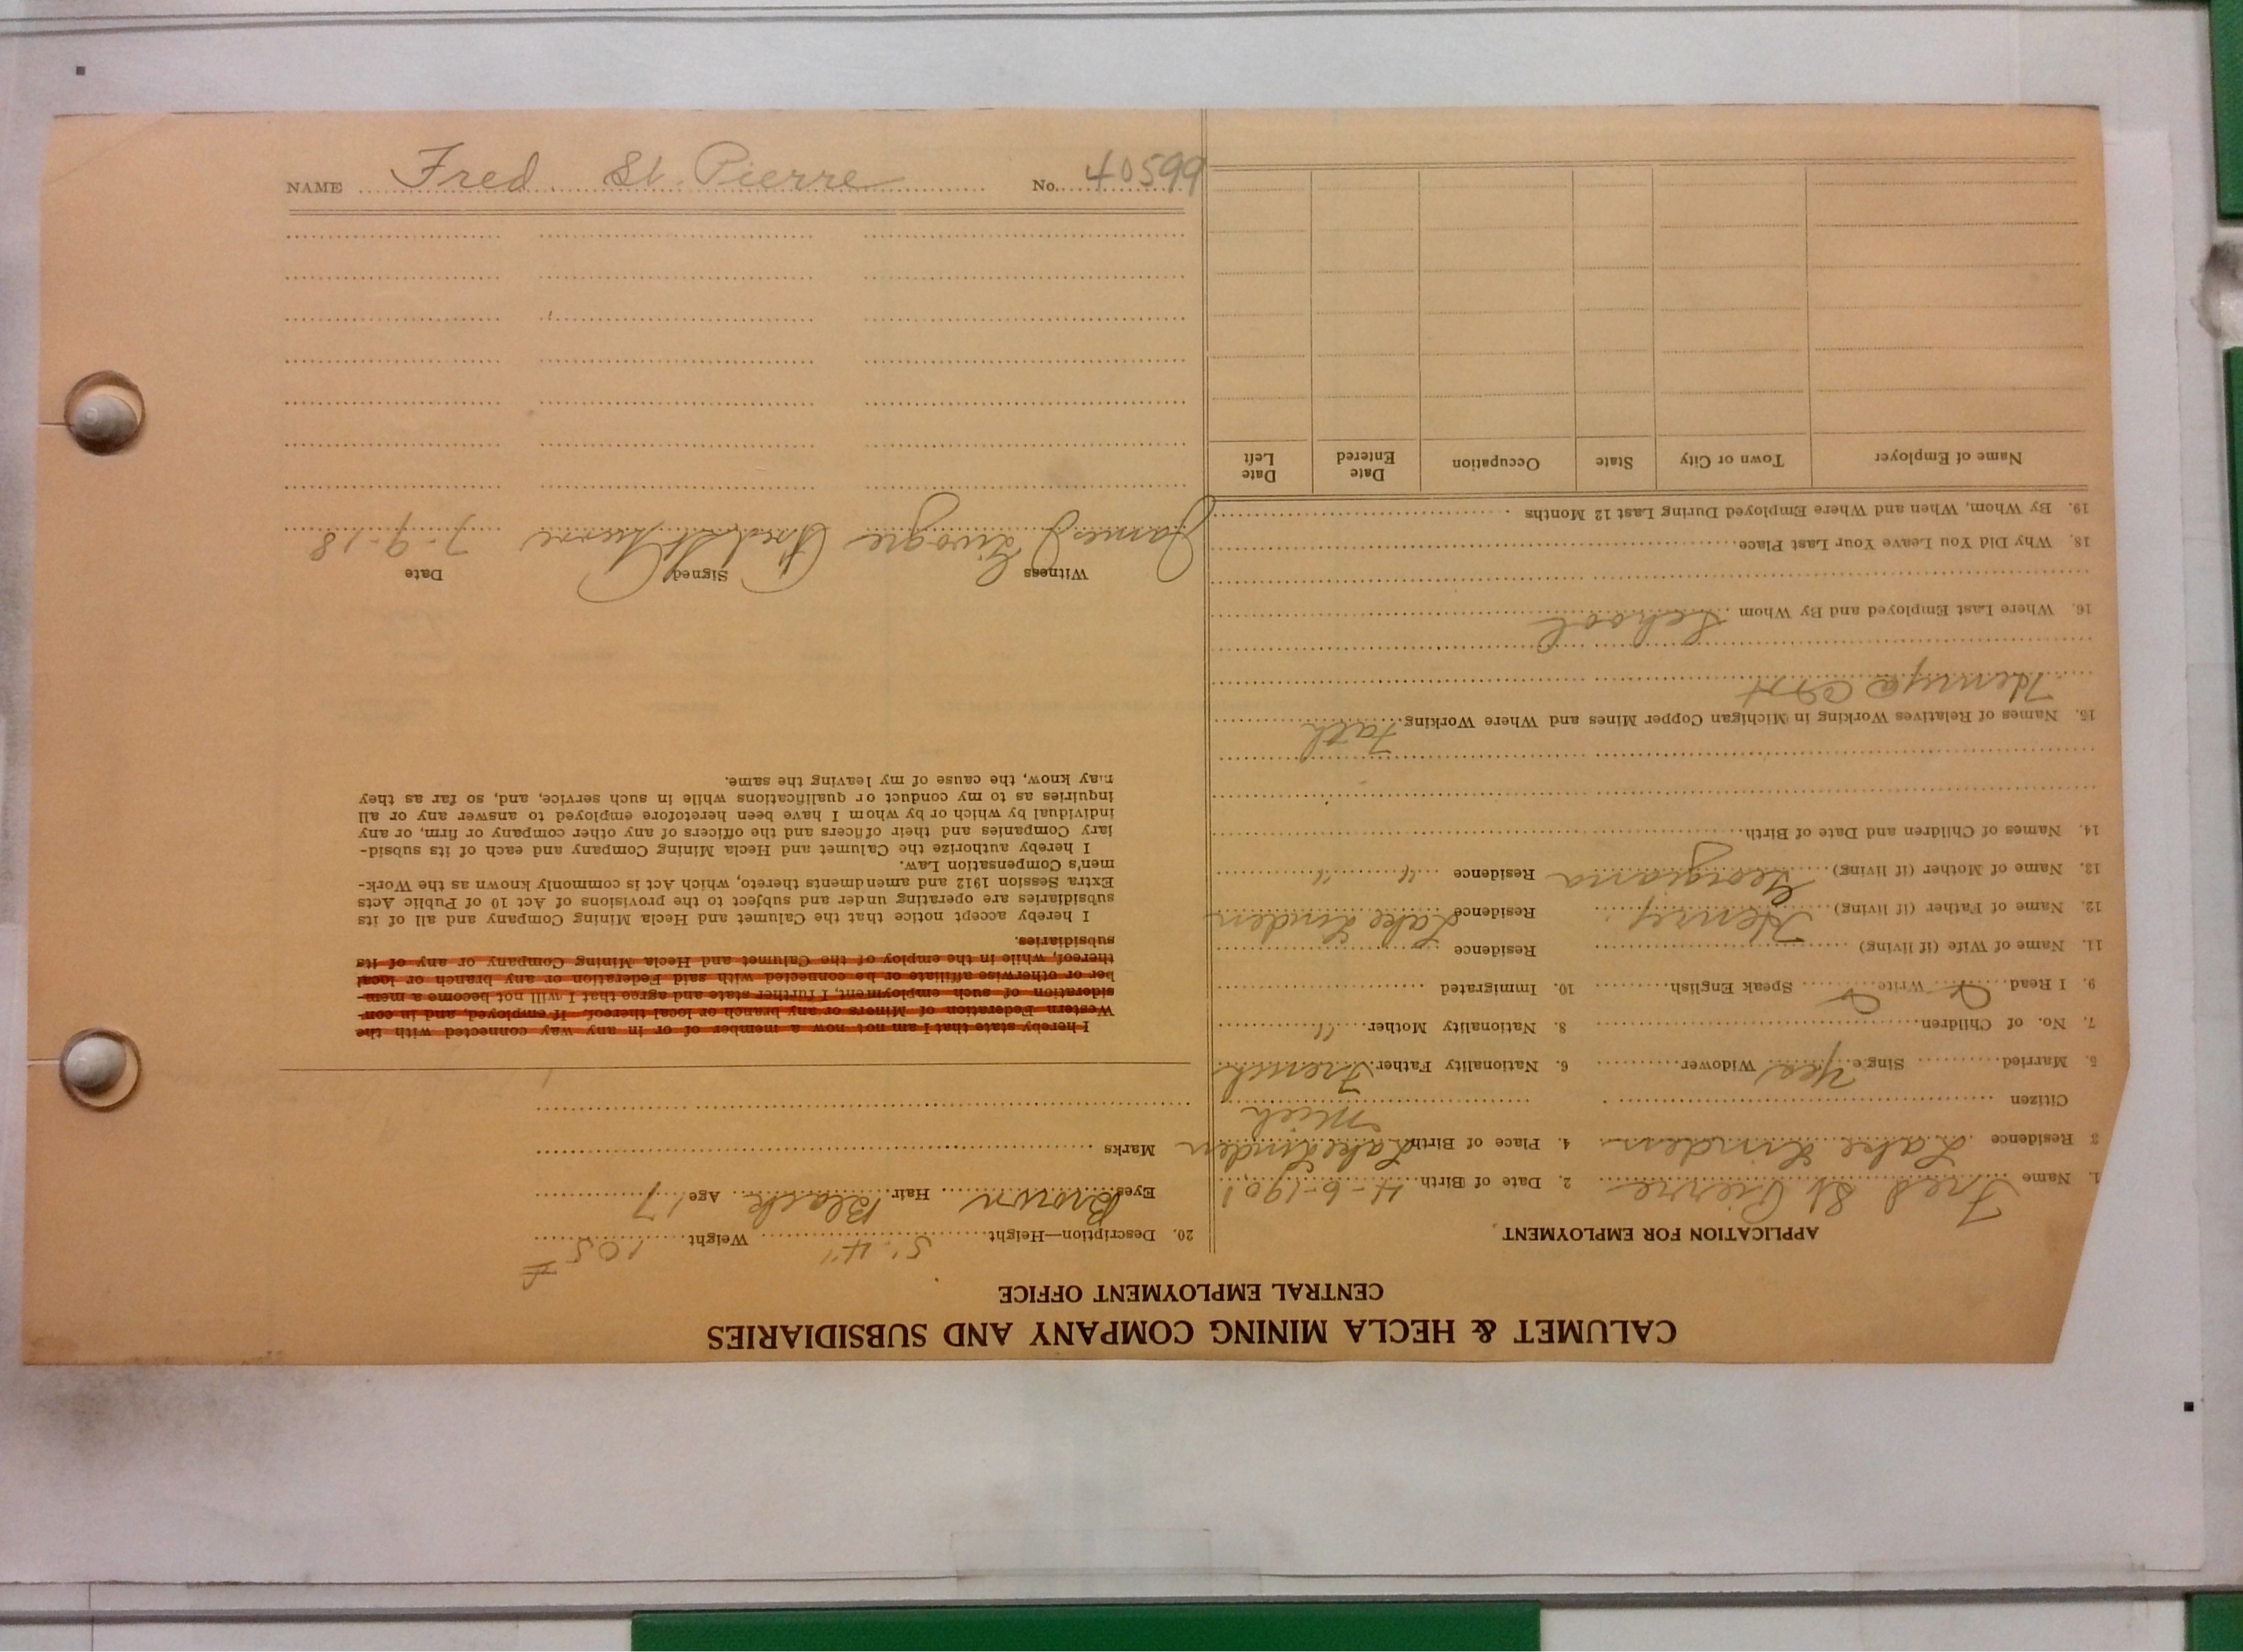 CALUMET & HECLA MINING COMPANY AND SUBSIDIARIES
CENTRAL EMPLOYMENT OFFICE
APPLICATION FOR EMPLOYMENT
1. Name Fred St. Pierre 2. Date of Birth 4-6-1901
3 Residence Lake Linden 4. Place of Birth Lake Linden
Mich
Citizen
5. Married Single Yes Widower 6. Nationality Father French
7. No. of Children 8. Nationality Mother "
9. I Read Write Speak English 10. Immigrated
11. Name of Wife (if living) Residence
12. Name of Father (if living) Henry Residence Lake Linden
13. Name of Mother (if living) Georgiana Residence " "
14. Names of Children and Date of Birth
15. Names of Relatives Working in Michigan Copper Mines and Where Working Fath
Henry @
16. Where Last Employed and By Whom School
18. Why Did You Leave Your Last Place
19. By Whom, When and Where Employed During Last 12 Months
Name of Employer Town or City State Occupation Date Entered Date Left
20. Description—Height 5'.4" Weight 105 #
Eyes Brown Hair Black Age 17
Marks
I hereby state that I am not now a member of or in any way connected with the
Western Federation of Miners or any branch or local thereof. If employed, and in con-
sideration of such employment, I further state and agree that I will not become a mem-
ber or otherwise affiliate or be connected with said Federation or any branch or local
thereof, while in the employ of the Calumet and Hecla Mining Company or any of its
subsidiaries.
I hereby accept notice that the Calumet and Hecla Mining Company and all of its
subsidiaries are operating under and subject to the provisions of Act 10 of Public Acts
Extra Session 1912 and amendments thereto, which Act is commonly known as the Work-
men's Compensation Law.
I hereby authorize the Calumet and Hecla Mining Company and each of its subsid-
iary Companies and their officers and the officers of any other company or firm, or any
individual by which or by whom I have been heretofore employed to answer any or all
inquiries as to my conduct or qualifications while in such service, and, so far as they
may know, the cause of my leaving the same.
Witness Signed Date
James Fred St Pierre 7-9-18
NAME Fred St. Pierre No. 40599